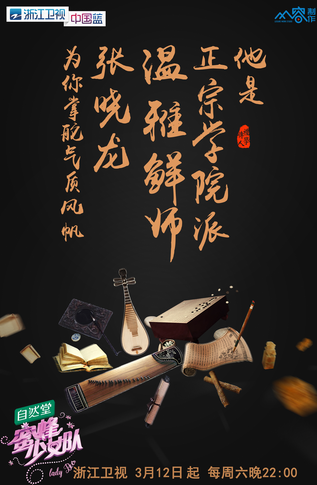 浙江卫视
中国蓝
制作
他是
正宗学院派
温雅鲜师
张晓龙
为你掌舵气质风帆
自然堂
蜜蜂少女队
lady Bees
浙江卫视 3月12日起 每周六晚22:00